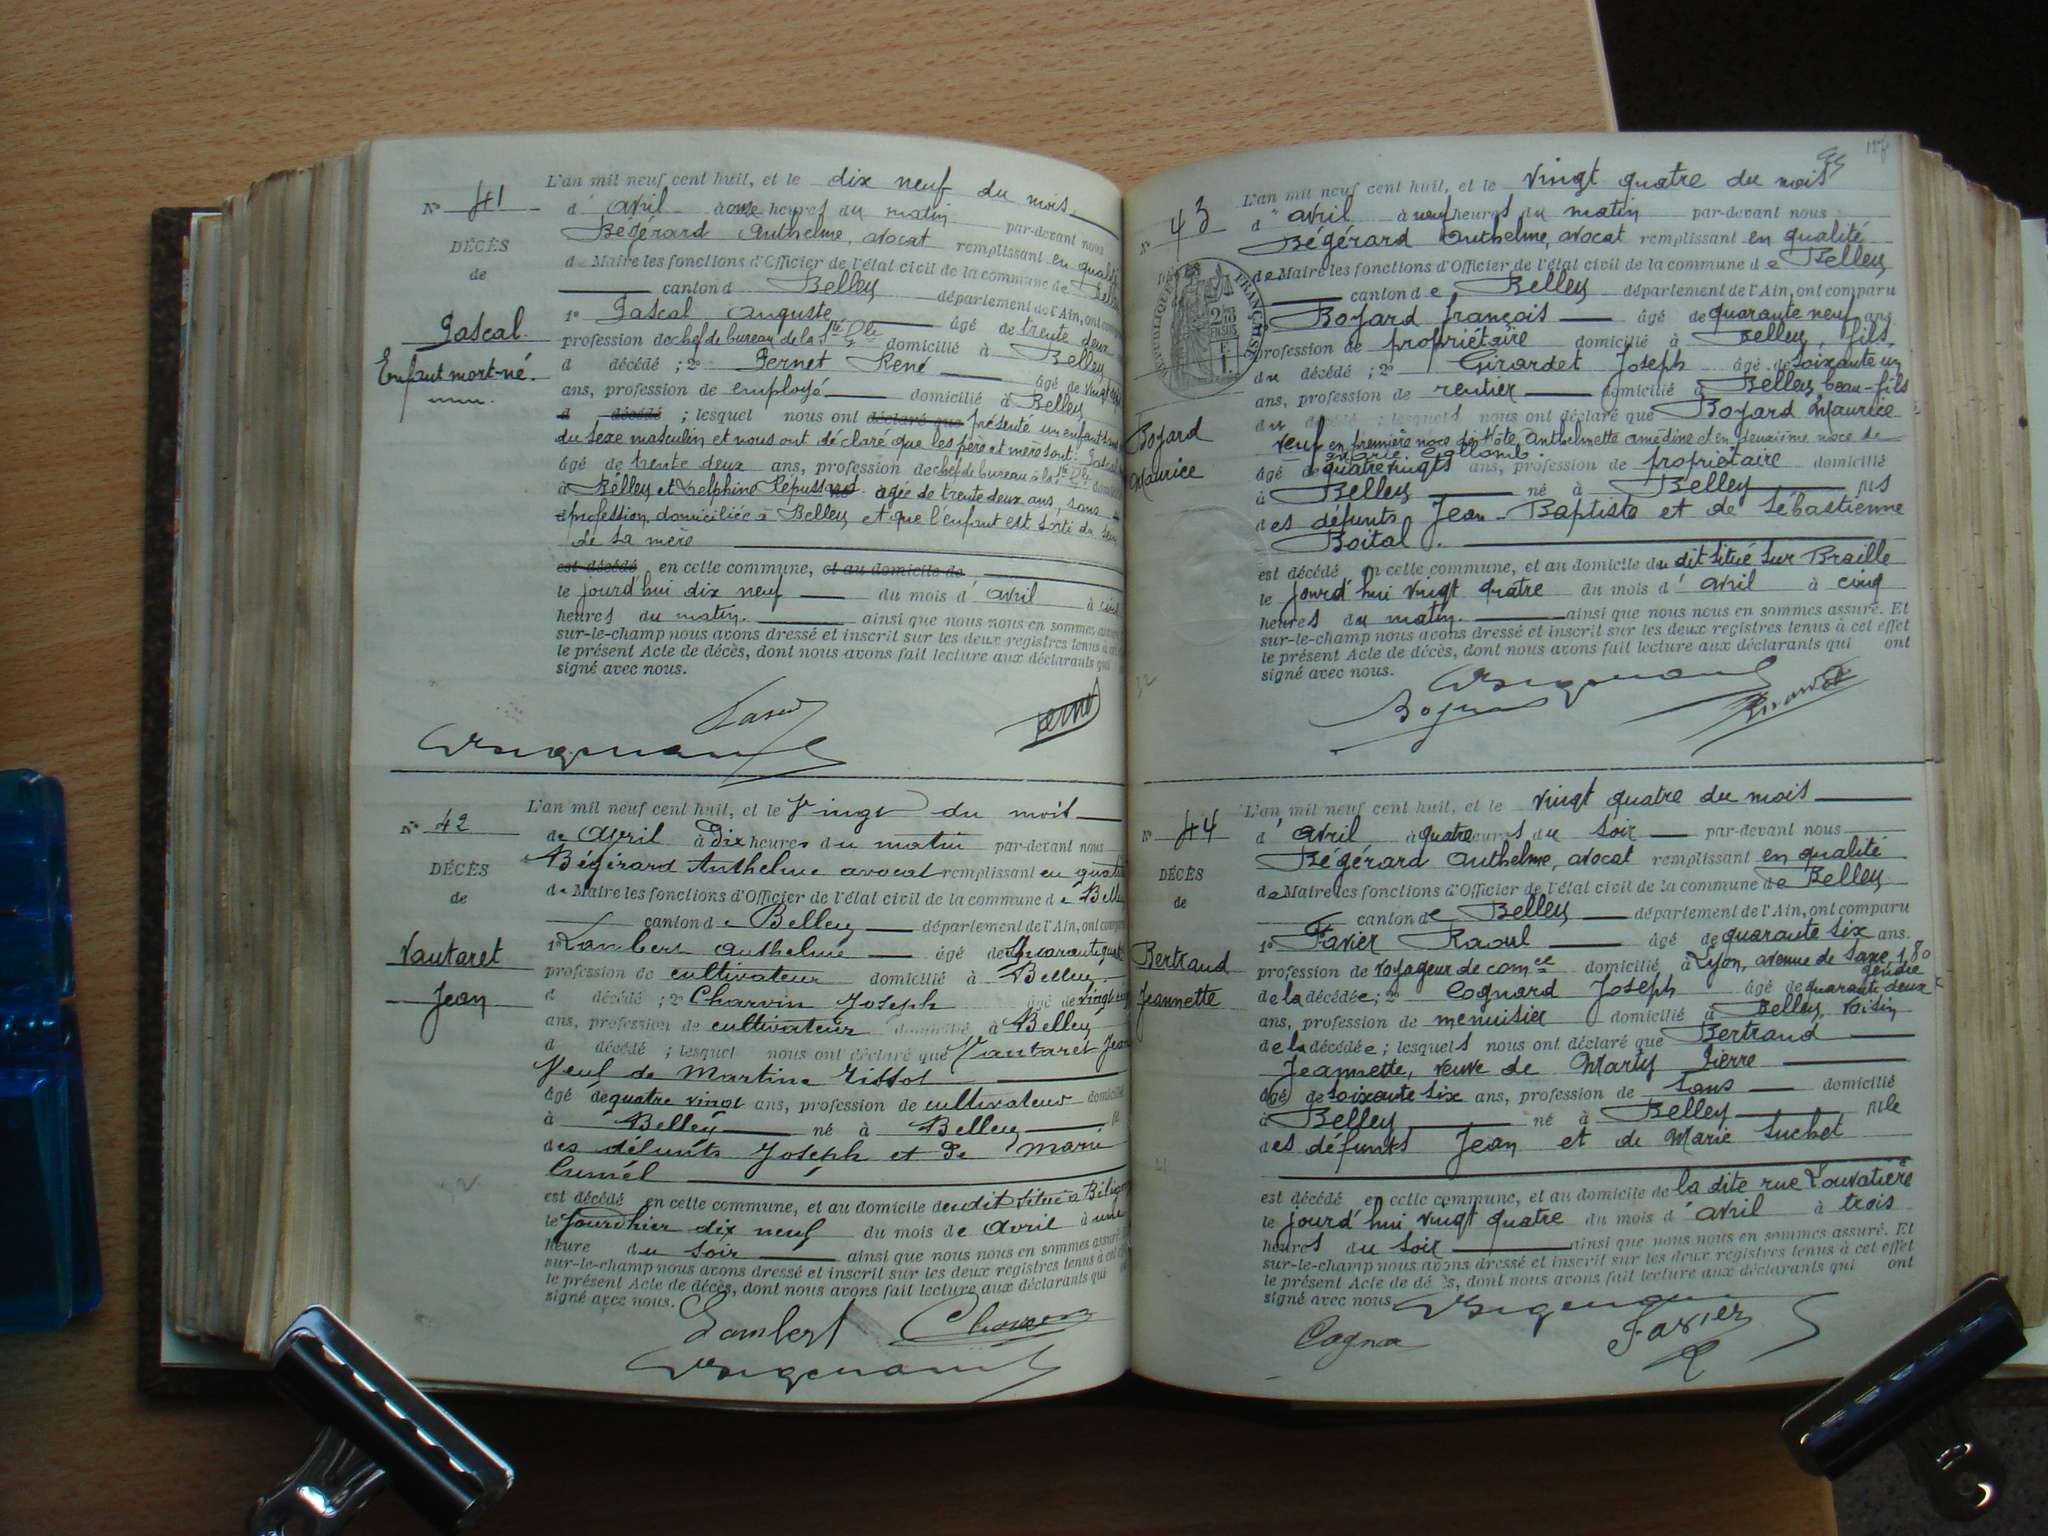 L'an mil neuf cent huit, et le dix neuf du mois
N° 41
d' avril à onze heures du matin par-devant nous
Bégérard Anthelme, avocat remplissant en qualité
DÉCÈS
de Maire les fonctions d'Officier de l'état civil de la commune de
de
canton d Belley département de l'Ain, ont comparu
1° Pascal Auguste âgé de trente deux
Pascal
profession de chef de bureau de la domicilié à Belley
Enfant mort-né.
d décédé ; 2° Pernet René âgé de vingt
ans, profession de employé domicilié à Belley
d décédé ; lesquel nous ont déclaré que présenté un enfant
du sexe masculin et nous ont déclaré que les père et mère sont : Pascal
âgé de trente deux ans, profession de chef de bureau à la
à Belley et Delphine âgée de trente deux ans, sans
profession domiciliée à Belley et que l'enfant est sorti du sein
de sa mère
est décédé en cette commune, et au domicile de
le jourd'hui dix neuf du mois d' avril à
heures du matin. ainsi que nous nous en sommes assuré
sur-le-champ nous avons dressé et inscrit sur les deux registres tenus à cet
le présent Acte de décès, dont nous avons fait lecture aux déclarants qui
signé avec nous.
L'an mil neuf cent huit, et le Vingt du mois
N° 42
de Avril à Dix heures du matin par-devant nous
Bégérard Anthelme avocat remplissant en qualité
DÉCÈS
de Maire les fonctions d'Officier de l'état civil de la commune de Belley
de
canton de Belley département de l'Ain, ont comparu
Vautaret
1° Lambert Anthelme âgé de Quarante
profession de cultivateur domicilié à Belley
Jean
d décédé ; 2° Charvin Joseph âgé de vingt
ans, profession de cultivateur domicilié à Belley
d décédé ; lesquel nous ont déclaré que Vautaret Jean
Veuf de Martine Tissot
âgé de quatre vingt ans, profession de cultivateur domicilié
à Belley né à Belley
des défunts Joseph et de Marie
est décédé en cette commune, et au domicile du dit situé à
le jourd'hier dix neuf du mois de Avril à une
heure du soir ainsi que nous nous en sommes assuré
sur-le-champ nous avons dressé et inscrit sur les deux registres tenus à cet
le présent Acte de décès, dont nous avons fait lecture aux déclarants qui
signé avec nous.
Lambert Charvin
L'an mil neuf cent huit, et le vingt quatre du mois
N° 43
d' avril à neuf heures du matin par-devant nous
Bégérard Anthelme, avocat remplissant en qualité
de Maire les fonctions d'Officier de l'état civil de la commune de Belley
canton de Belley département de l'Ain, ont comparu
Bojard françois âgé de quarante neuf ans
profession de propriétaire domicilié à Belley, fils
du décédé ; 2° Girardet Joseph âgé de soixante un
ans, profession de rentier domicilié à Belley beau-fils
du décédé ; lesquels nous ont déclaré que Bojard Maurice
Bojard
Maurice
veuf en première noce de Anthelmette amédine et en deuxième noce de
Marie Collomb.
âgé de quatre vingts ans, profession de propriétaire domicilié
à Belley né à Belley fils
des défunts Jean-Baptiste et de Sébastienne
Boital.
est décédé en cette commune, et au domicile du dit situé sur Braille
le jourd'hui vingt quatre du mois d' avril à cinq
heures du matin. ainsi que nous nous en sommes assuré. Et
sur-le-champ nous avons dressé et inscrit sur les deux registres tenus à cet effet
le présent Acte de décès, dont nous avons fait lecture aux déclarants qui ont
signé avec nous.
L'an mil neuf cent huit, et le vingt quatre du mois
N° 44
d' avril à quatre heures du soir par-devant nous
Bégérard Anthelme, avocat remplissant en qualité
DÉCÈS
de Maire les fonctions d'Officier de l'état civil de la commune de Belley
de
canton de Belley département de l'Ain, ont comparu
1° Favier Raoul âgé de quarante six ans.
Bertrand
profession de voyageur de comce domicilié à Lyon, avenue de Saxe, 180
gendre
Jeannette
de la décédée ; 2° Cognard Joseph âgé de quarante deux
ans, profession de menuisier domicilié à Belley, voisin
de la décédée ; lesquels nous ont déclaré que Bertrand
Jeannette, veuve de Marty Pierre
âgé de soixante six ans, profession de sans domicilié
à Belley né à Belley fille
des défunts Jean et de Marie Suchet
est décédé en cette commune, et au domicile de la dite rue Louvatière
le jourd'hui vingt quatre du mois d' avril à trois
heures du soir ainsi que nous nous en sommes assuré. Et
sur-le-champ nous avons dressé et inscrit sur les deux registres tenus à cet effet
le présent Acte de décès, dont nous avons fait lecture aux déclarants qui ont
signé avec nous.
Favier